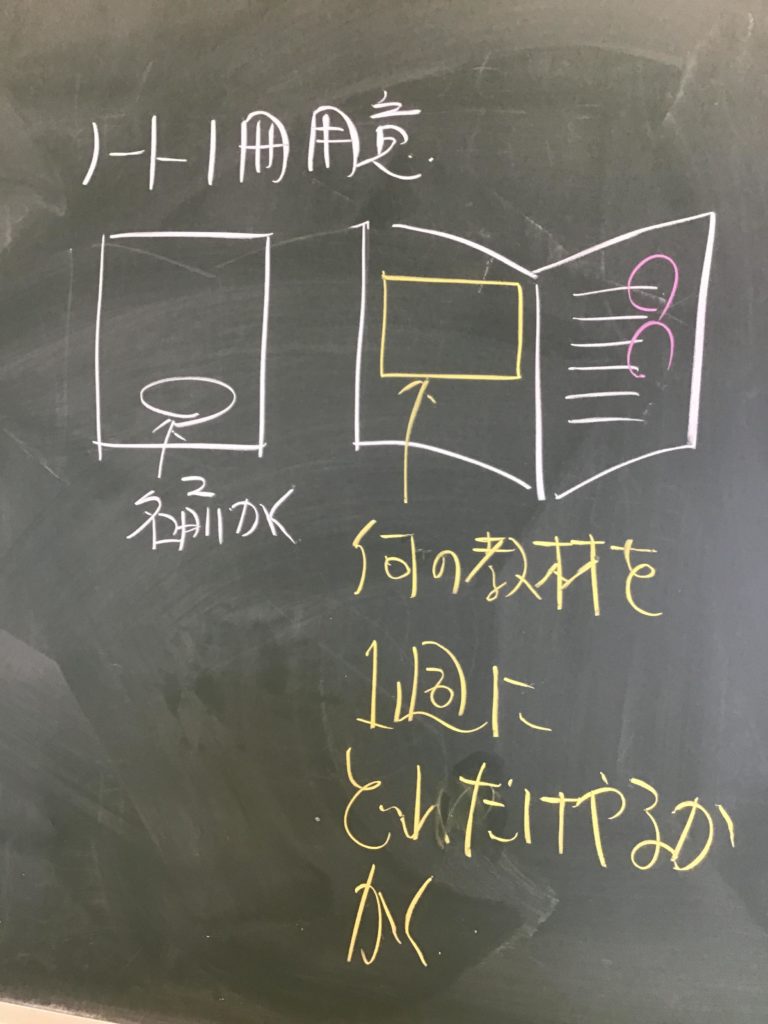 ノート1冊用意.
名前かく
何の教材を
1週に
どれだけやるか
かく